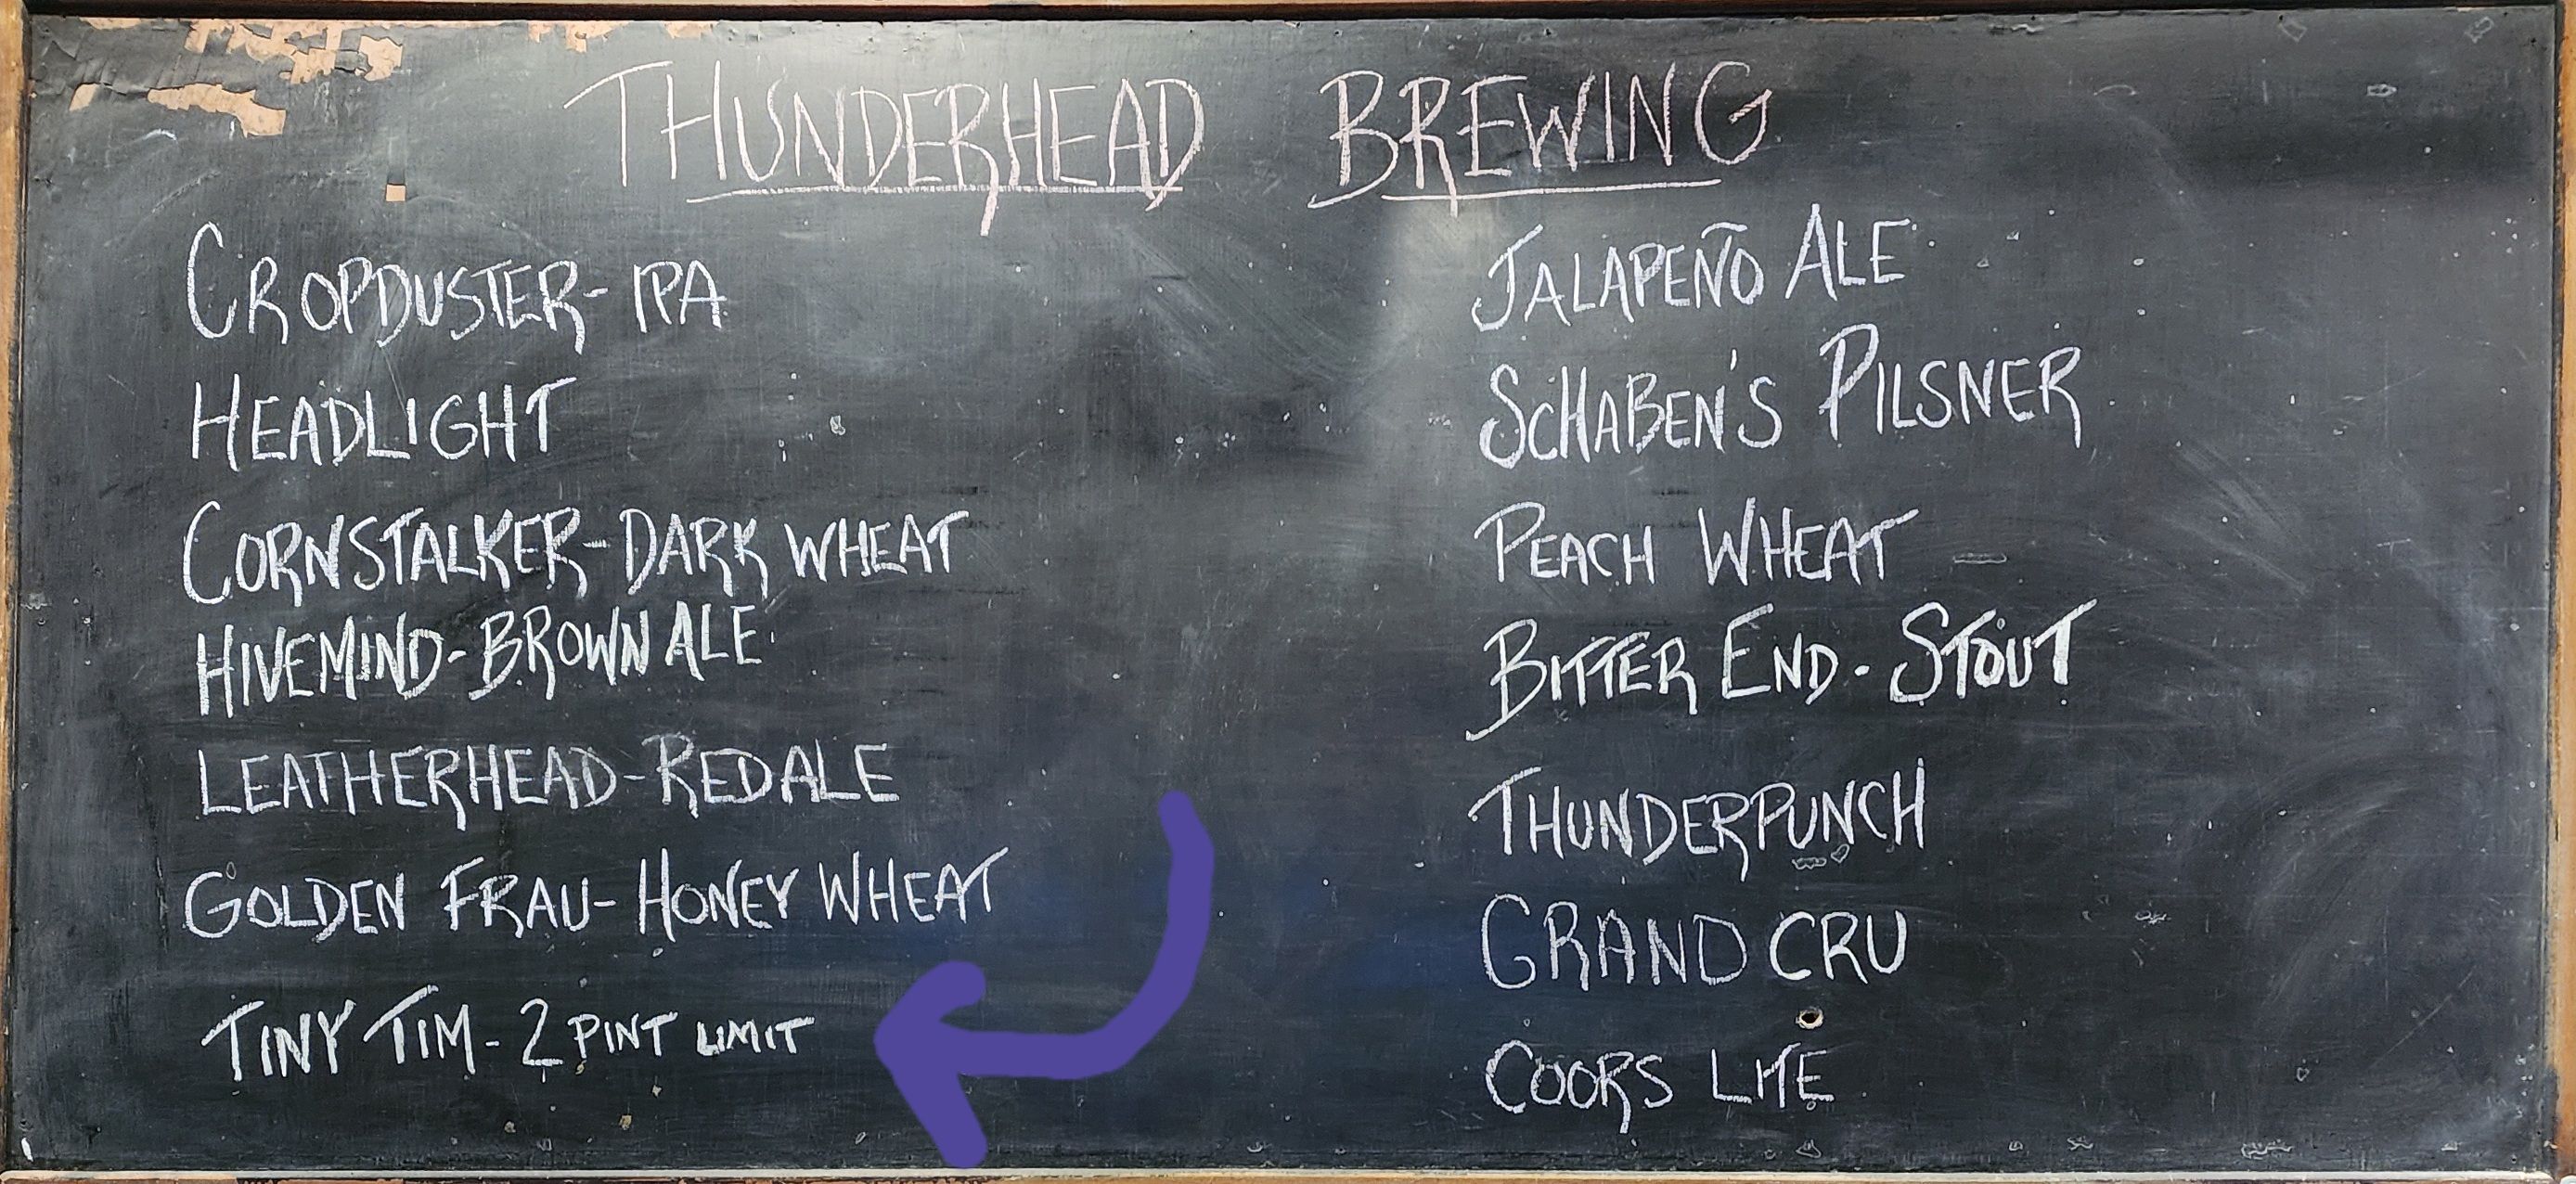 THUNDERHEAD BREWING
CROPDUSTER- IPA
HEADLIGHT
CORNSTALKER-DARK WHEAT
HIVEMIND-BROWN ALE
LEATHERHEAD-RED ALE
GOLDEN FRAU- HONEY WHEAT
TINY TIM- 2 PINT LIMIT
JALAPEÑO ALE
SCHABEN'S PILSNER
PEACH WHEAT
BITTER END - STOUT
THUNDERPUNCH
GRAND CRU
COORS LITE